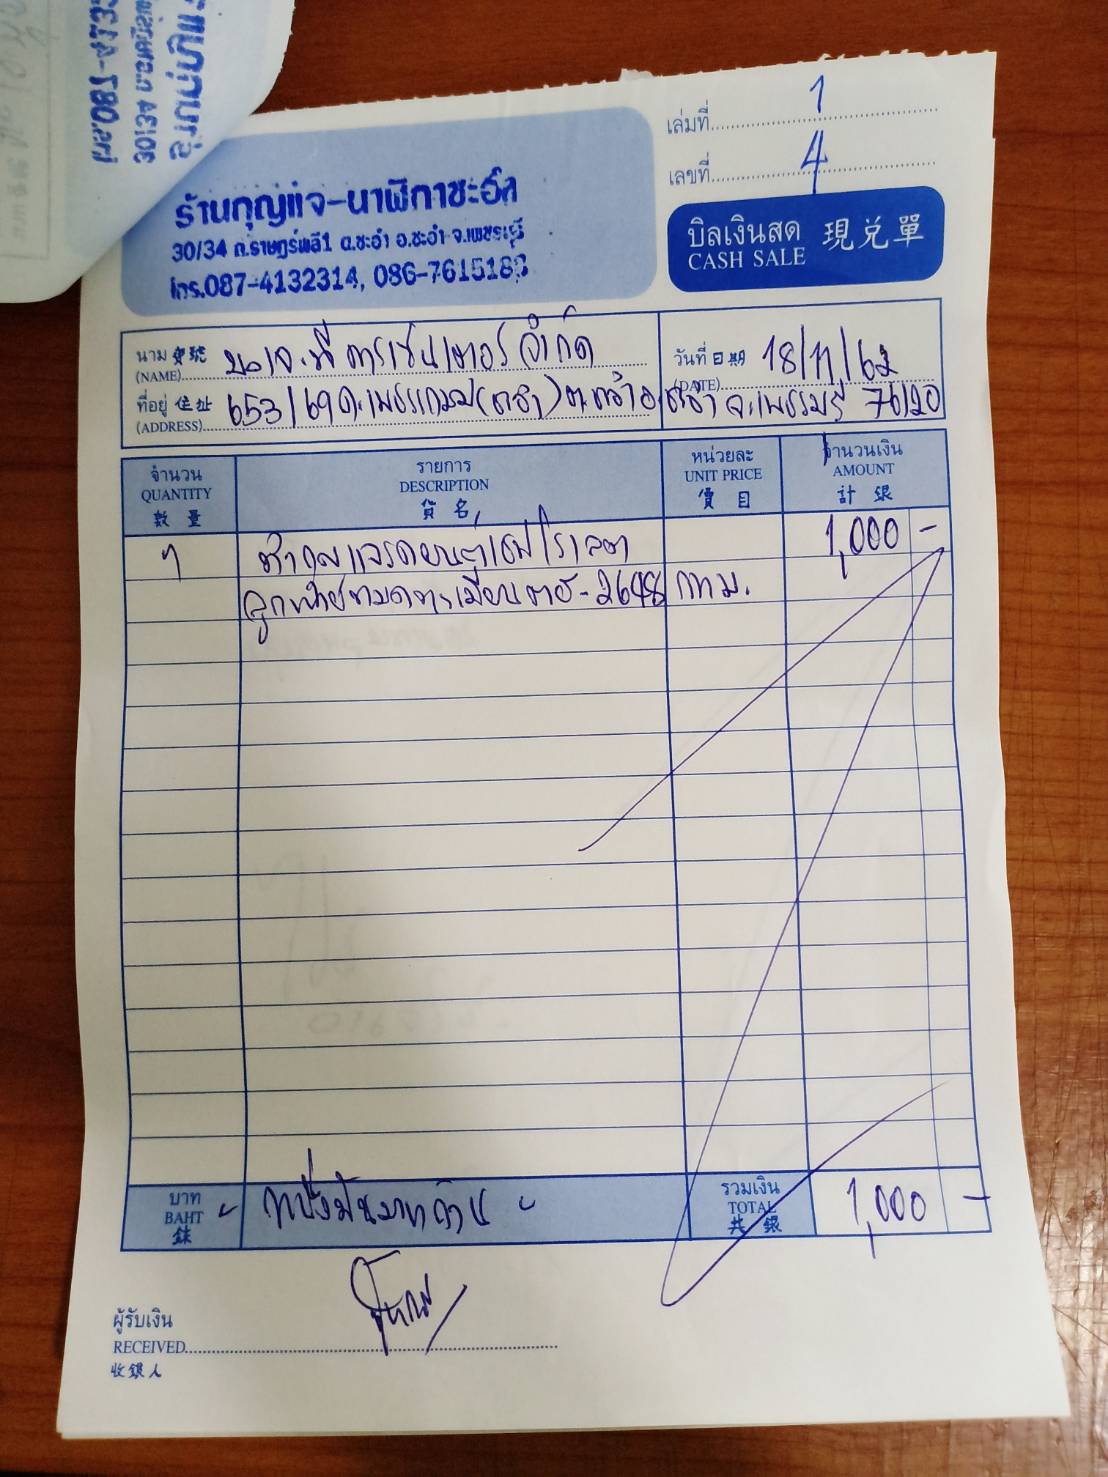 เล่มที่ 1
เลขที่ 4
ร้านกุญแจ-นาฬิกาชะอำ
30/34 ถ.ราษฎร์พลี1 ต.ชะอำ อ.ชะอำ จ.เพชรบุรี
โทร.087-4132314, 086-7615188
บิลเงินสด 現兑單
CASH SALE
นาม 寶號 จำกัด
(NAME)
วันที่ 日期 18/11/62
(DATE)
ที่อยู่ 住址 653/69 ถ.เพชรเกษม (ชะอำ) ต.ชะอำ อ.ชะอำ จ.เพชรบุรี 76120
(ADDRESS)
จำนวน รายการ หน่วยละ จำนวนเงิน
QUANTITY DESCRIPTION UNIT PRICE AMOUNT
數量 貨名 價目 計銀
1 ทำกุญแจรถยนต์ 1,000 -
ทะเบียน 2648 กทม.
บาท หนึ่งพันบาทถ้วน รวมเงิน 1,000 -
BAHT TOTAL
銖 共銀
ผู้รับเงิน
RECEIVED
收銀人